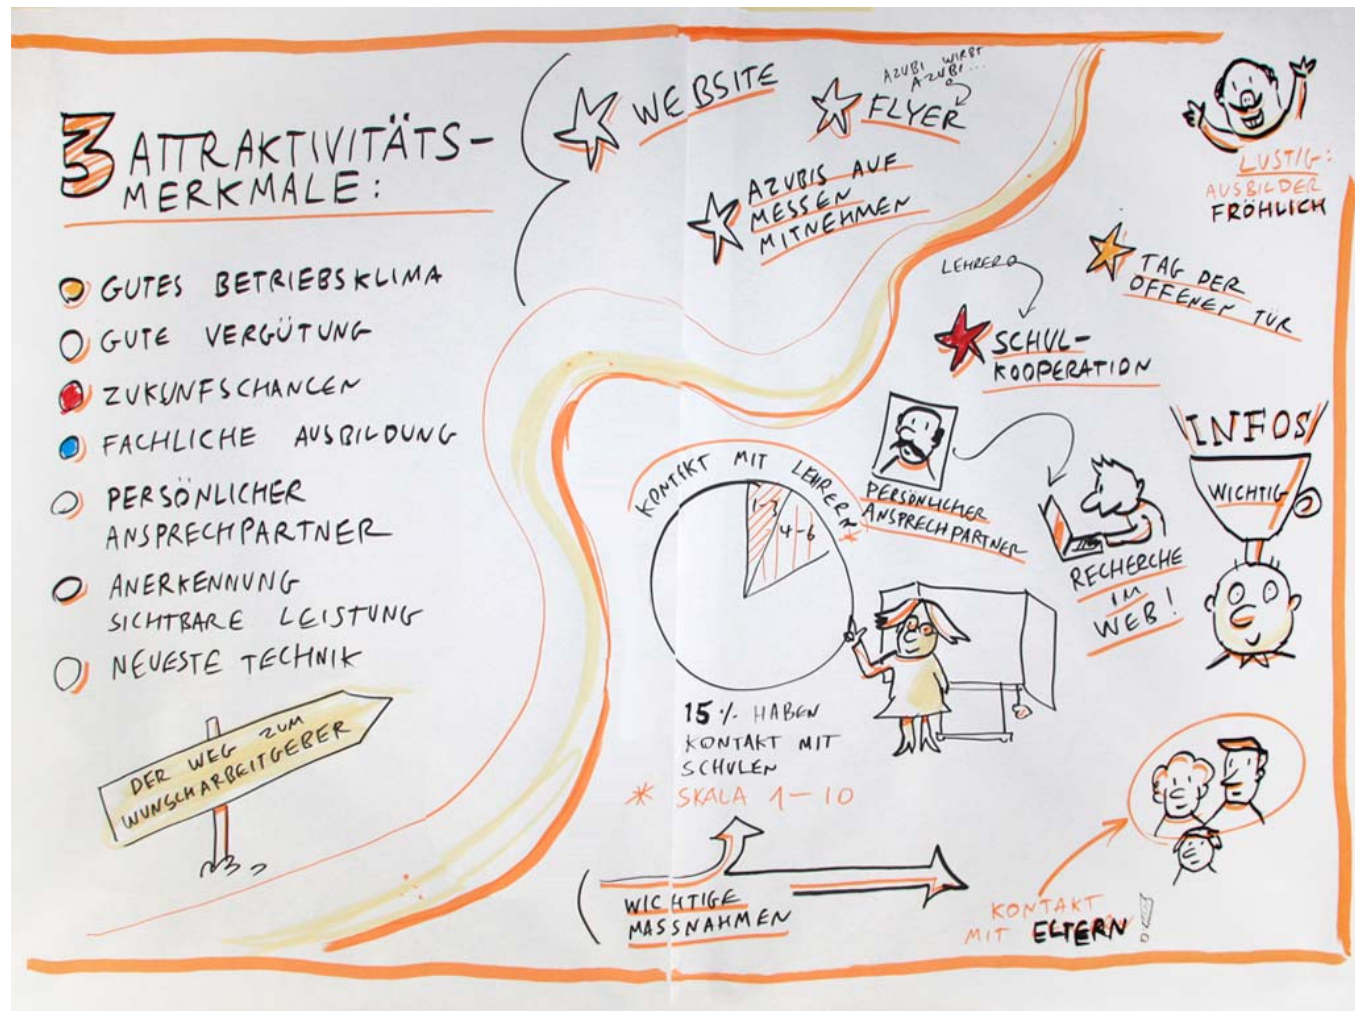 3 ATTRAKTIVITÄTS-
MERKMALE:
GUTES BETRIEBSKLIMA
GUTE VERGÜTUNG
ZUKUNFSCHANCEN
FACHLICHE AUSBILDUNG
PERSÖNLICHER
ANSPRECHPARTNER
ANERKENNUNG
SICHTBARE LEISTUNG
NEUESTE TECHNIK
DER WEG ZUM
WUNSCHARBEITGEBER
WEBSITE
AZUBI WIRBT
AZUBI...
FLYER
AZUBIS AUF
MESSEN
MITNEHMEN
LUSTIG:
AUSBILDER
FRÖHLICH
TAG DER
OFFENEN TÜR
LEHRER
SCHUL-
KOOPERATION
PERSÖNLICHER
ANSPRECHPARTNER
RECHERCHE
IM
WEB!
INFOS
WICHTIG
KONTAKT MIT LEHRERN*
1-3
4-6
15% HABEN
KONTAKT MIT
SCHULEN
* SKALA 1-10
WICHTIGE
MASSNAHMEN
KONTAKT
MIT ELTERN!